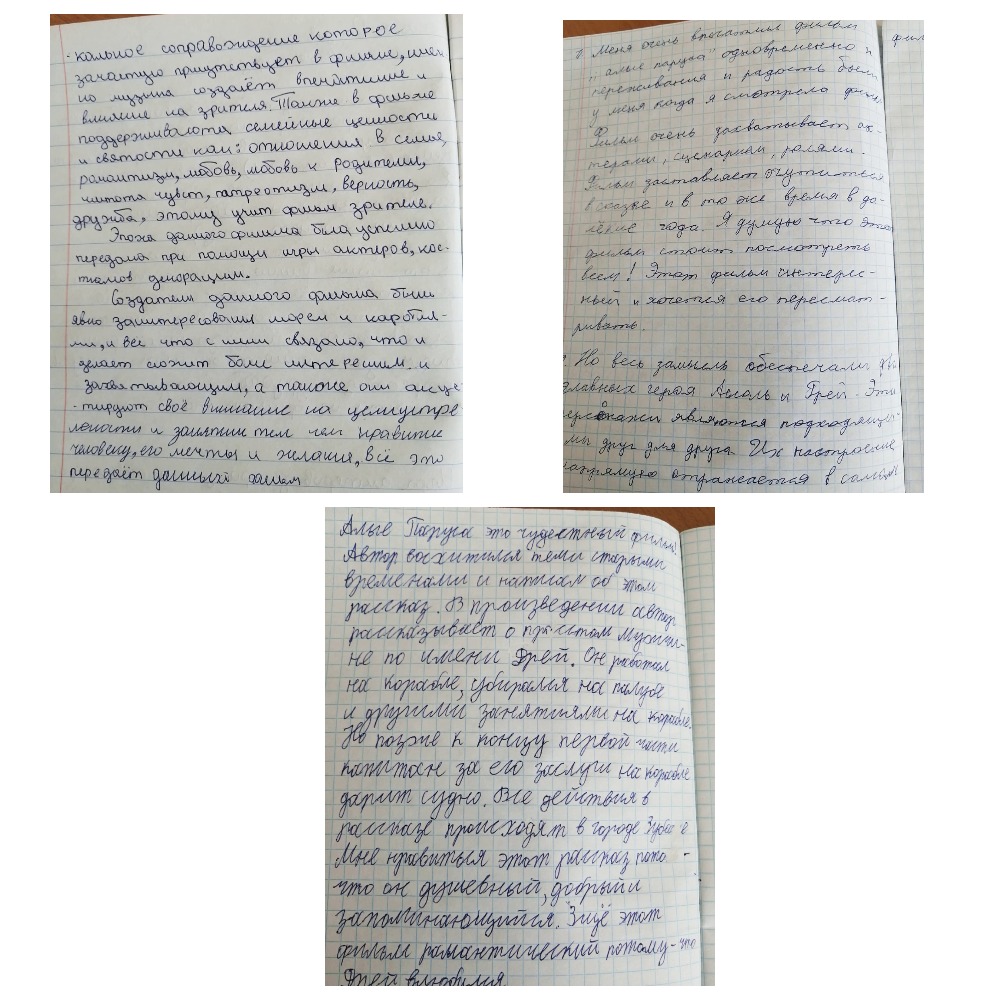 -кольное соправождение которое
зачастую присутствует в фильме, имен
но музыка создаёт впечатление и
влияние на зрителя. Также в фильме
поддерживаются семейные ценности
и святости как: отношения в семье,
романтизм, любовь, любовь к родителям,
чистота чувст, патреотизм, верность,
дружба, этому учит фильм зрителе.
Эпоха данного фильма была успешно
передана при помощи игры актеров, кос-
тюмов декорации.
Создатели данного фильма были
явно заинтересованы морем и корабля-
ми, и все что с ними связано, что и
делает сюжет более интересным и
захватывающим, а также они акце
-тируют своё внимание на целеустре-
лености и занятии тем чем нравится
человеку, его мечты и желания, всё это
передаёт данный фильм
1. Меня очень впечатлил фильм
"алые паруса" одновременно и
переживания и радость были
у меня когда я смотрела фильм
Фильм очень захватывает ак-
терами, сценарием, ролями.
Фильм заставляет очутиться
в сказке и в то же время в да-
лёкие года. Я думаю что этот
фильм стоит посмотреть
всем! Этот фильм интерес-
ный и хочется его пересмат-
ривать.
Но весь замысль обеспечали два
главных героя Ассоль и Грей. Эти
персонажи являются подходящи-
ми друг для друга. Их настроение
напрямую отражается в самом
фил
Алые Паруса это чудестный фильм.
Автор восхитился теми старыми
временами и написал об этом
рассказ. В произведении автор
рассказывает о простом мужчи-
не по имени Грей. Он работал
на корабле, убирался на палубе
и другими занятиями на корабле.
Но позже к концу первой части
капитан за его заслуги на корабле
дарит судно. Все действия в
рассказе происходят в городе
Мне нравиться этот рассказ пото -
что он душевный, добрый и
запоминающийся. Ещё этот
фильм романтический потому-что
Грей влюбился.